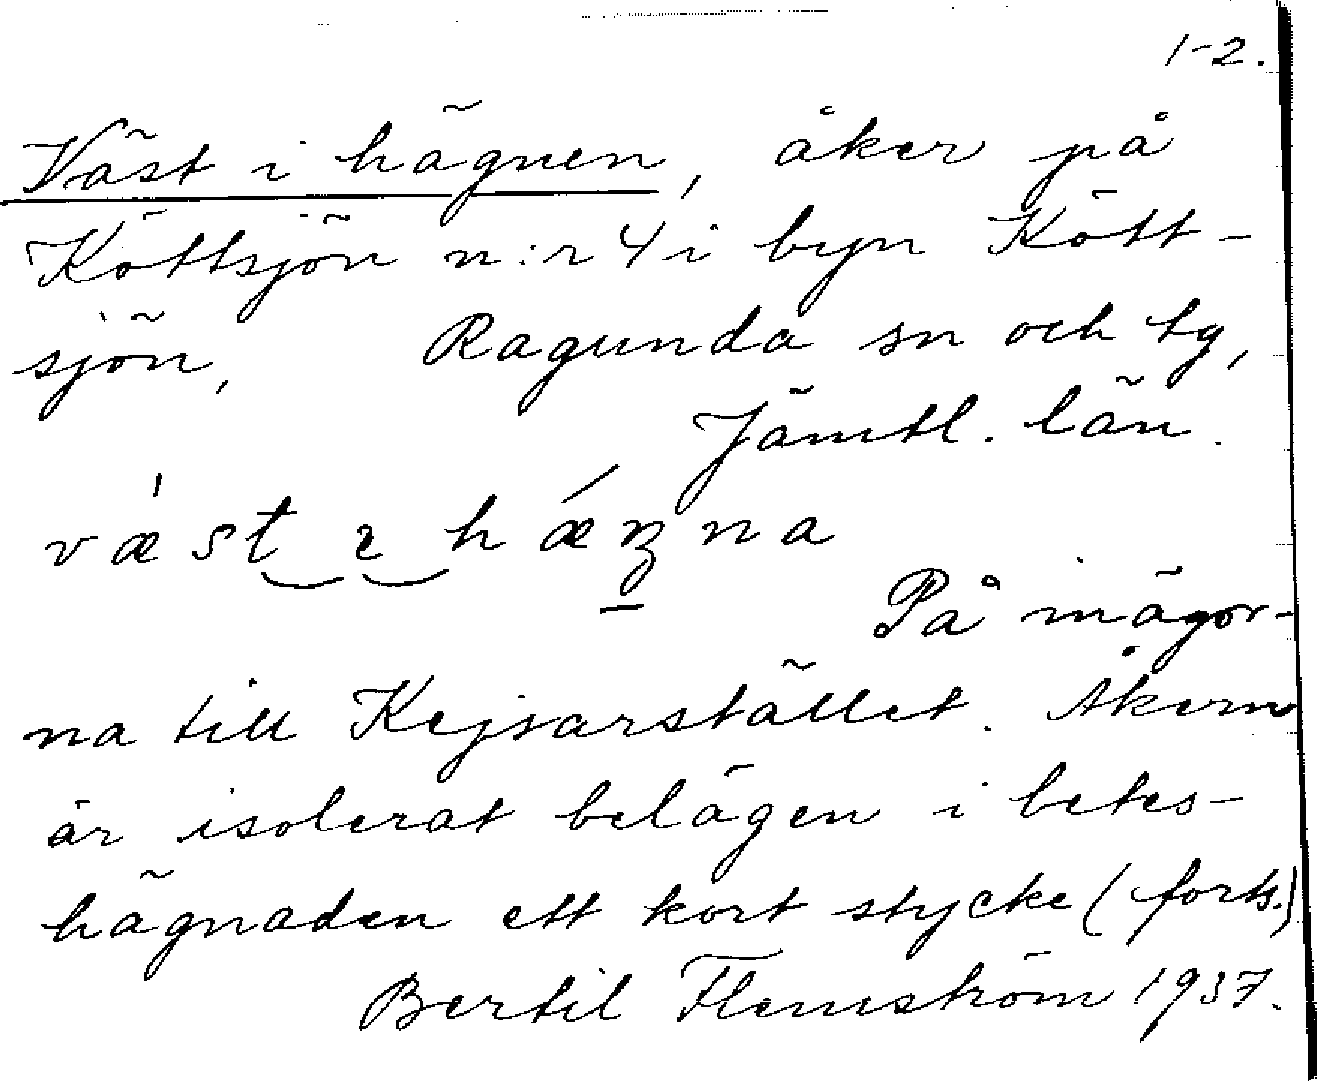 1-2.
Väst i hägnen, åker på
Köttsjön n:r 4 i byn Kött-
sjön, Ragunda sn och tg,
Jämtl. län.
væst ɩ hæŋna
På ägor-
na till Kejsarstället. Åkern
är isolerat belägen i betes-
hägnaden ett kort stycke (forts.)
Bertil Flemström 1937.